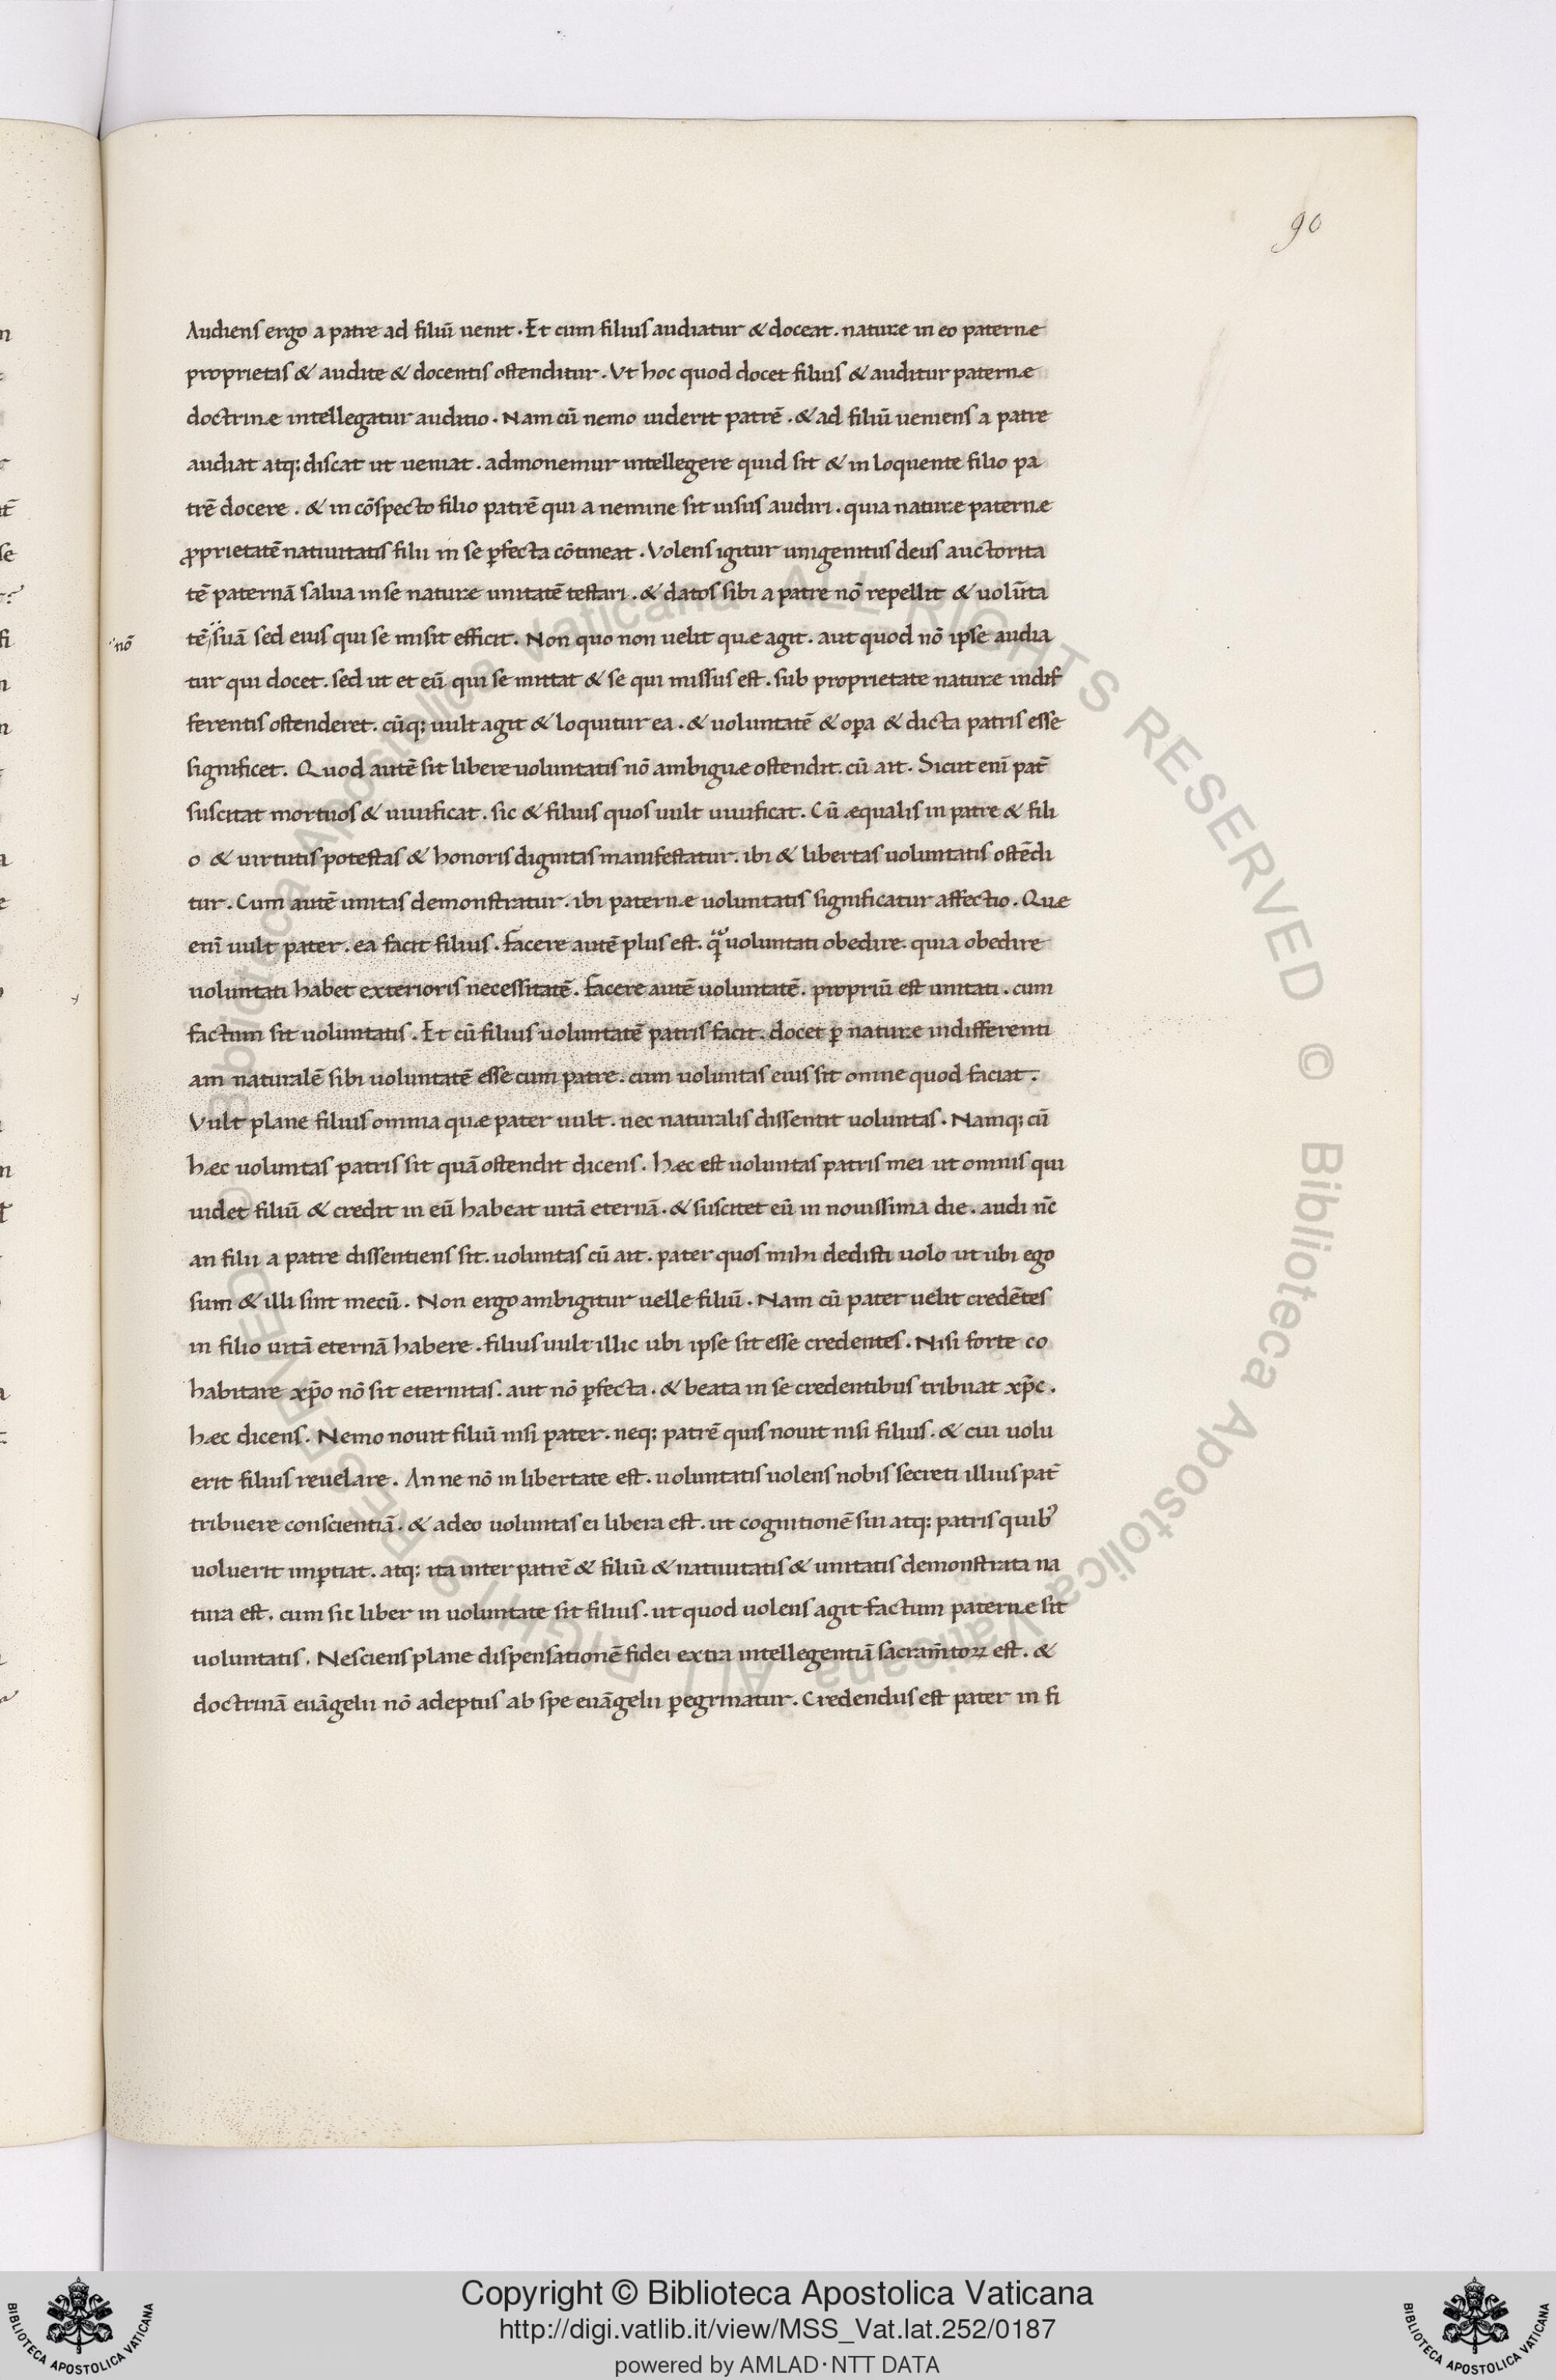 90
Audiens ergo a patre ad filiū uenit . Et cum filius audiatur & doceat . naturæ in eo paternæ
proprietas & audite & docentis ostenditur . Vt hoc quod docet filius & auditur paternæ
doctrinæ intellegatur auditio . Nam cū nemo uiderit patrē . & ad filiū ueniens a patre
audiat atq; discat ut ueniat . admonemur intellegere quid sit & in loquente filio pa
trē docere . & in cōspecto filio patrē qui a nemine sit uisus audiri . quia naturæ paternæ
ꝓprietatē natiuitatis filii in se ꝑfecta cōtineat . Volens igitur unigenitus deus auctorita
tē paternā salua in se naturæ unitatē testari . & datos sibi a patre nō repellit & uolūta
nō
tē suā sed eius qui se misit efficit . Non quo non uelit quæ agit . aut quod nō ipse audia
tur qui docet . sed ut et eū qui se mittat & se qui missus est . sub proprietate naturæ indif
ferentis ostenderet . cūq; uult agit & loquitur ea . & uoluntatē & oꝑa & dicta patris esse
significet . Quod autē sit libere uoluntatis nō ambiguæ ostendit . cū ait . Sicut enī pat̄
suscitat mortuos & uiuificat . sic & filius quos uult uiuificat . Cū æqualis in patre & fili
o & uirtutis potestas & honoris dignitas manifestatur . ibi & libertas uoluntatis ostēdi
tur . Cum autē unitas demonstratur . ibi paternæ uoluntatis significatur affectio . Quæ
enī uult pater . ea facit filius . Facere autē plus est . q̄ uoluntati obedire . quia obedire
uoluntati habet exterioris necessitatē . Facere autē uoluntatē . propriū est unitati . cum
factum sit uoluntatis . Et cū filius uoluntatē patris facit . docet ꝑ naturæ indifferenti
am naturalē sibi uoluntatē esse cum patre . cum uoluntas eius sit omne quod faciat .
Vult plane filius omnia quæ pater uult . nec naturalis dissentit uoluntas . Namq; cū
hæc uoluntas patris sit quā ostendit dicens . hæc est uoluntas patris mei ut omnis qui
uidet filiū & credit in eū habeat uitā eternā . & suscitet eū in nouissima die . audi nc̄
an filii a patre dissentiens sit . uoluntas cū ait . pater quos mihi dedisti uolo ut ubi ego
sum & illi sint mecū . Non ergo ambigitur uelle filiū . Nam cū pater uelit credētes
in filio uitā eternā habere . filius uult illic ubi ipse sit esse credentes . Nisi forte co
habitare xp̄o nō sit eternitas . aut nō ꝑfecta . & beata in se credentibus tribuat xp̄c .
hæc dicens . Nemo nouit filiū nisi pater . neq; patrē quis nouit nisi filius . & cui uolu
erit filius reuelare . An ne nō in libertate est . uoluntatis uolens nobis secreti illius pat̄
tribuere conscientiā . & adeo uoluntas ei libera est . ut cognitionē sui atq; patris quibꝰ
uoluerit imꝑtiat . atq; ita inter patrē & filiū & natiuitatis & unitatis demonstrata na
tura est . cum sic liber in uoluntate sit filius . ut quod uolens agit factum paternæ sit
uoluntatis . Nesciens plane dispensationē fidei extra intellegentiā sacram̄toꝝ est . &
doctrinā euāgelii nō adeptus ab spe euāgelii ꝑegrinatur . Credendus est pater in fi
Copyright © Biblioteca Apostolica Vaticana
http://digi.vatlib.it/view/MSS_Vat.lat.252/0187
powered by AMLAD·NTT DATA
BIBLIOTECA APOSTOLICA VATICANA
BIBLIOTECA APOSTOLICA VATICANA